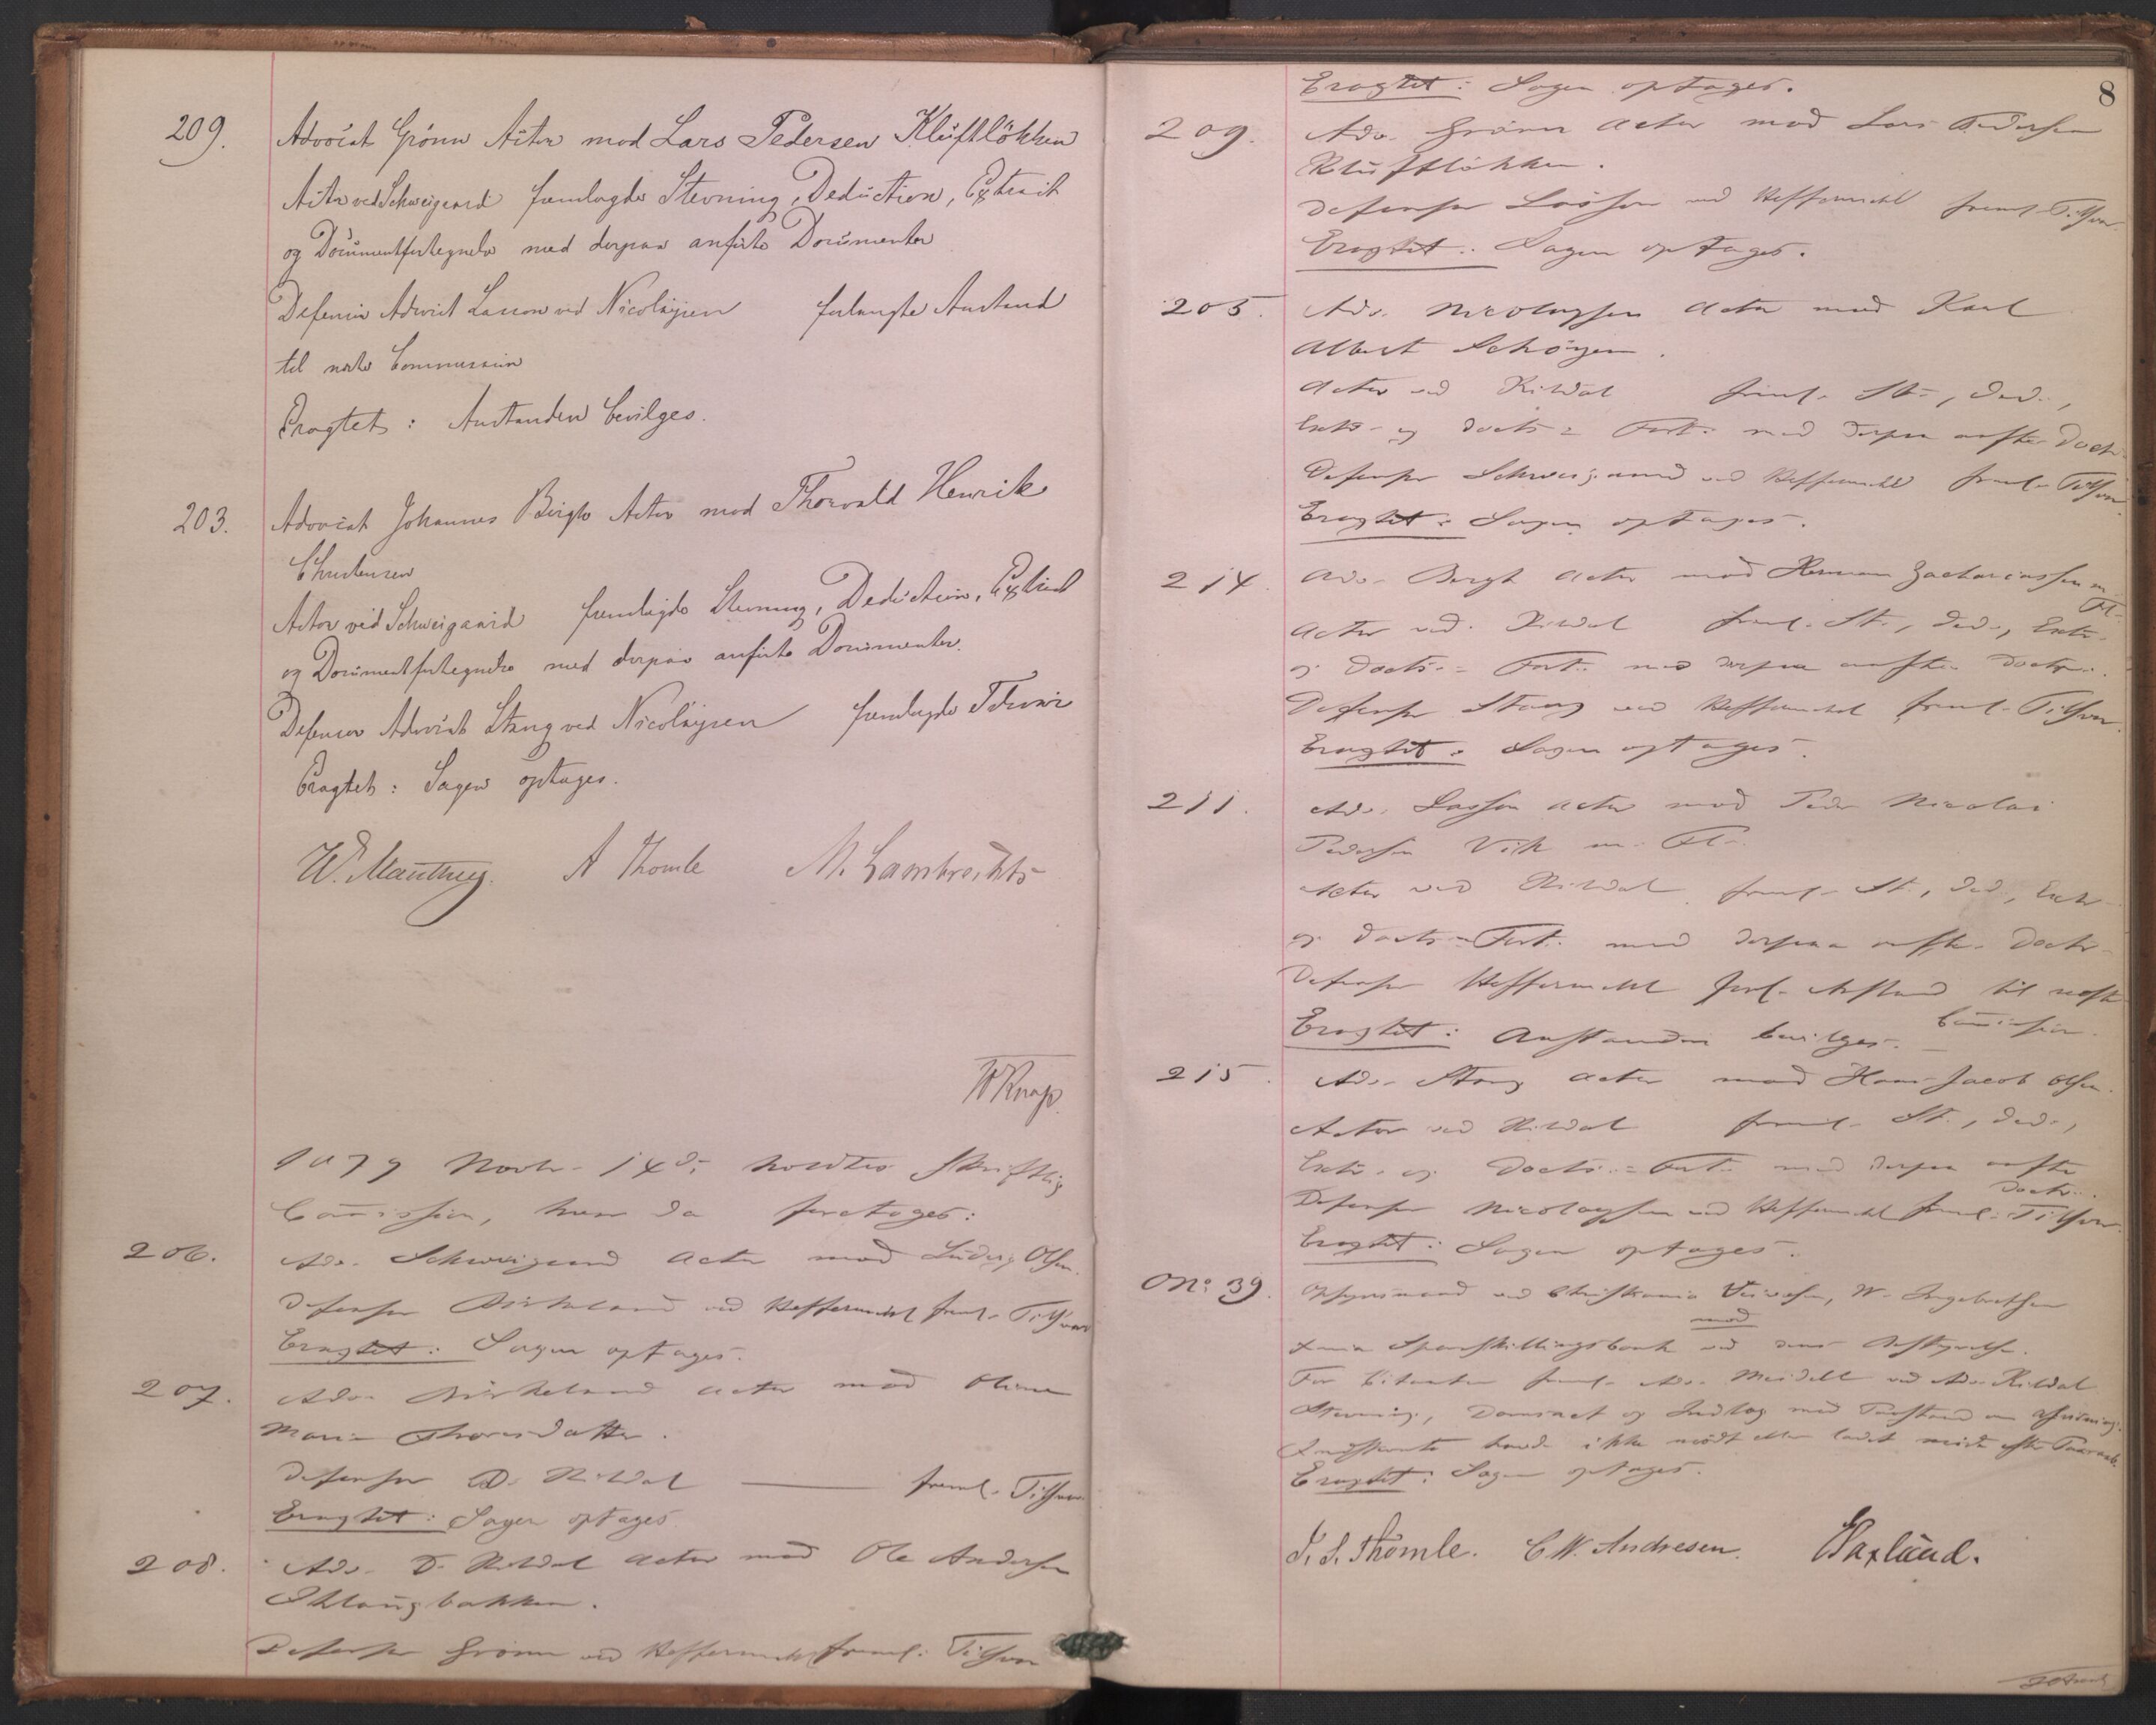 209. Advocat Grönn Actor mod Lars Pedersen Klüftlökken
Actor ved Schweigaard fremlagde Stevning, Deduction, Extract
og Documentfortegnelse med derpaa anførte Documenter
Defensor Advocat Lasson ved Nicolaysen forlangte Anstand
til næste Commission
Eragtet: Anstanden bevilges.
203. Advocat Johannes Bergh Actor mod Thorvald Henrik
Christensen
Actor ved Schweigaard fremlagde Stevning, Deduction, Extract
og Documentfortegnelse med derpaa anførte Documenter.
Defensor Advocat Stang ved Nicolaysen fremlagde Tilsvar
Eragtet: Sagen optages.
W. Manthey. A Thomle M. Lambrechts
1879 Novbr. 14d: holdtes skriftlig
Com̄ission, hvor da foretoges:
206. Adv. Schweigaard Actor mod Ludvig Olsen.
Defensor Birkeland ved Heffermehl freml. Tilsvar
Eragtet: Sagen optages.
207. Adv. Birkeland Actor mod Oline
Marie Thorsdatter.
Defensor D. Rildal — freml. Tilsvar
Eragtet: Sagen optages.
208. Adv. D. Rildal Actor mod Ole Andersen
Defensor Grönn ved Heffermehl freml. Tilsvar
8
Eragtet: Sagen optages.
209. Adv. Grönn Actor mod Lars Pedersen
Klüftlökken.
Defensor Lasson ved Heffermehl freml. Tilsvar.
Eragtet: Sagen optages.
205. Adv. Nicolaysen Actor mod Karl
Albert Schöyen.
Actor ved Rildal freml. St., Ded.,
Extr. og Docts.= Fort. med derpaa anførte Docter
Defensor Schweigaard ved Heffermehl freml. Tilsvar.
Eragtet: Sagen optages.
214. Adv. Bergh Actor mod Herman Zachariassen m.
Fl.
Actor ved. Rildal freml. St., Ded., Extr.
og Docts.= Fort. med derpaa anførte Docter.
Defensor Stang ved Heffermehl freml. Tilsvar.
Eragtet: Sagen optages.
211. Adv. Lasson Actor mod Peder Nicolai
Pedersen Vik m. Fl.
Actor ved Rildal freml. St., Ded., Extr.
og Docts.= Fort. med derpaa anførte Docter
Defensor Heffermehl forl. Anstand til næste
Com̄ission.
Eragtet: Anstanden bevilges.
215. Adv. Stang Actor mod Hans Jacob Olsen.
Actor ved Rildal freml. St., Ded.,
Extr. og Docts.= Fort. med derpaa anførte
Docter.
Defensor Nicolaysen ved Heffermehl freml. Tilsvar.
Eragtet: Sagen optages.
No: 39. Opsynsmand ved Christiania W. Ingebretsen
mod
Xania Sparskillingsbank ved dens Bestyrelse.
For Citanten freml. Adv. Meidell ved Adv. Rildal
Stevning, Domsact og Indlæg med Paastand om Afvisning.
Indstevnte havde ikke mødt eller ladet møde efter Paaraab.
Eragtet: Sagen optages.
J. S. Thomle. C W. Andresen. Saxlund.